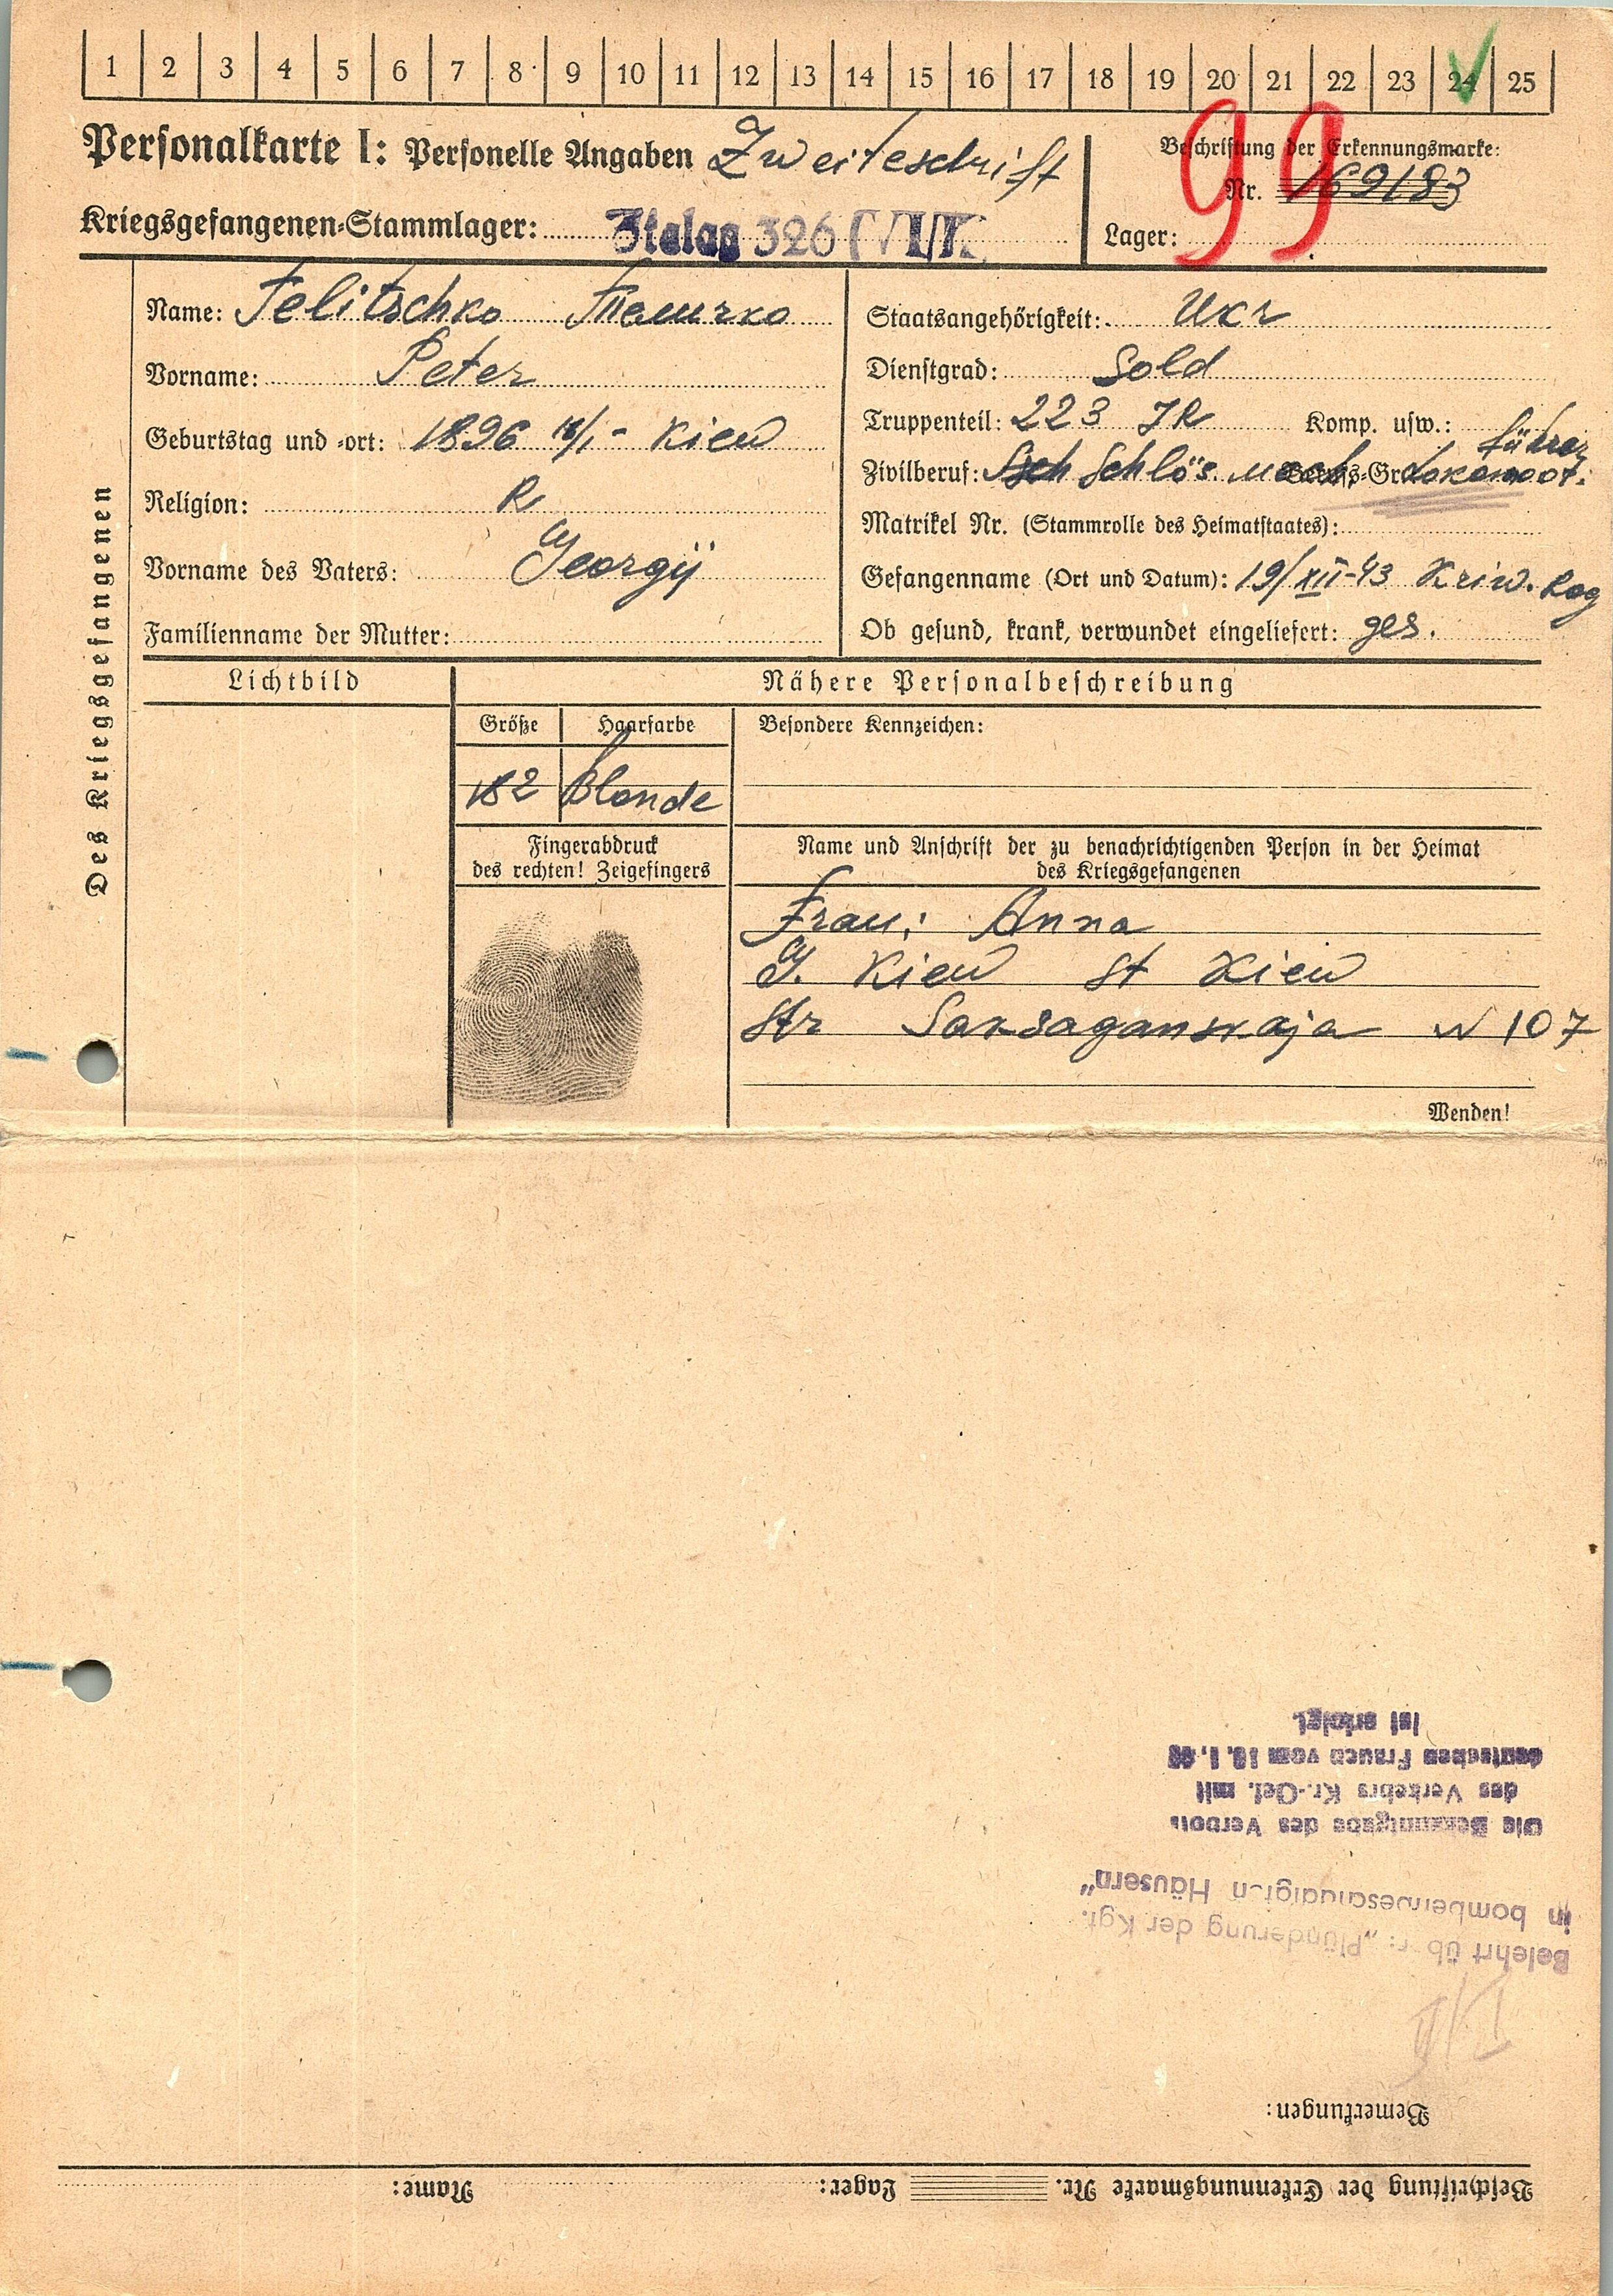 1 2 3 4 5 6 7 8 9 10 11 12 13 14 15 16 17 18 19 20 21 22 23 24 25
Personalkarte I: Personelle Angaben Zweiteschrift
Beschriftung der Erkennungsmarke:
Nr. 169183
99
Kriegsgefangenen-Stammlager: Stalag 326
Lager:
Des Kriegsgefangenen
Name: Felitschko
Vorname: Peter
Geburtstag und -ort: 1896 18/I - Kiew
Religion: R
Vorname des Vaters: Georgij
Familienname der Mutter:
Staatsangehörigkeit: Ukr
Dienstgrad: Sold
Truppenteil: 223 JR Komp. usw.:
Zivilberuf: Schlös. Mach. Lokomot. führer
Matrikel Nr. (Stammrolle des Heimatstaates):
Gefangenname (Ort und Datum): 19/XII-43 Kriw. Rog
Ob gesund, krank, verwundet eingeliefert: ges.
Lichtbild
Nähere Personalbeschreibung
Größe Haarfarbe
182 Blonde
Besondere Kennzeichen:
Fingerabdruck
des rechten! Zeigefingers
Name und Anschrift der zu benachrichtigenden Person in der Heimat
des Kriegsgefangenen
Frau: Anna
G. Kiew St Kiew
Str Saksaganskaja N 107
Wenden!
Beschriftung der Erkennungsmarke Nr. Lager: Name:
Bemerkungen:
Belehrt über: „Plünderung der Kgf.
in bombenbeschädigten Häusern"
Die Bekanntgabe des Verbots
des Verkehrs Kr.-Gef. mit
deutschen Frauen vom
ist erfolgt.